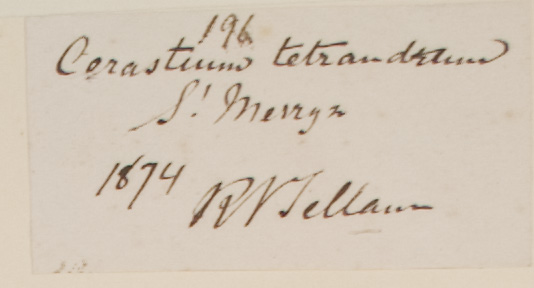 196
Cerastium tetrandrum
St Merryn
1874
R V Tellam